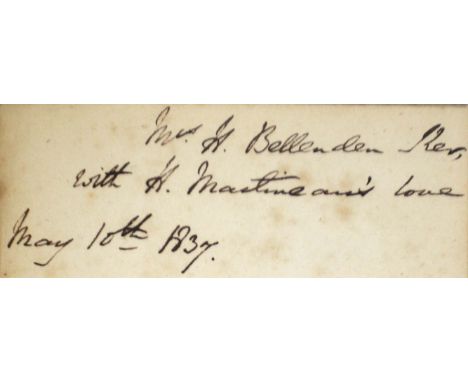 Mrs H. Bellenden Ker,
with H. Martineau's love
May 10th 1837.